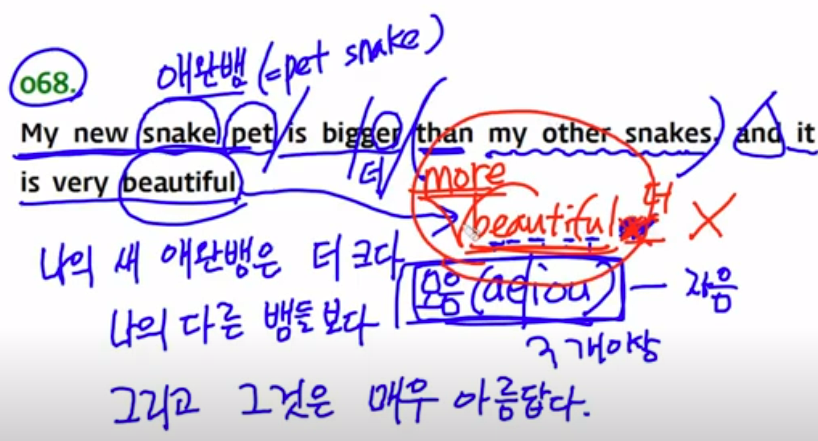 068. 애완뱀 (=pet snake)
My new snake pet is bigger than my other snakes, and it
더
is very beautiful.
more
beautiful 더 X
나의 새 애완뱀은 더 크다
모음 (aeiou) — 자음
나의 다른 뱀들보다
3개이상
그리고 그것은 매우 아름답다.